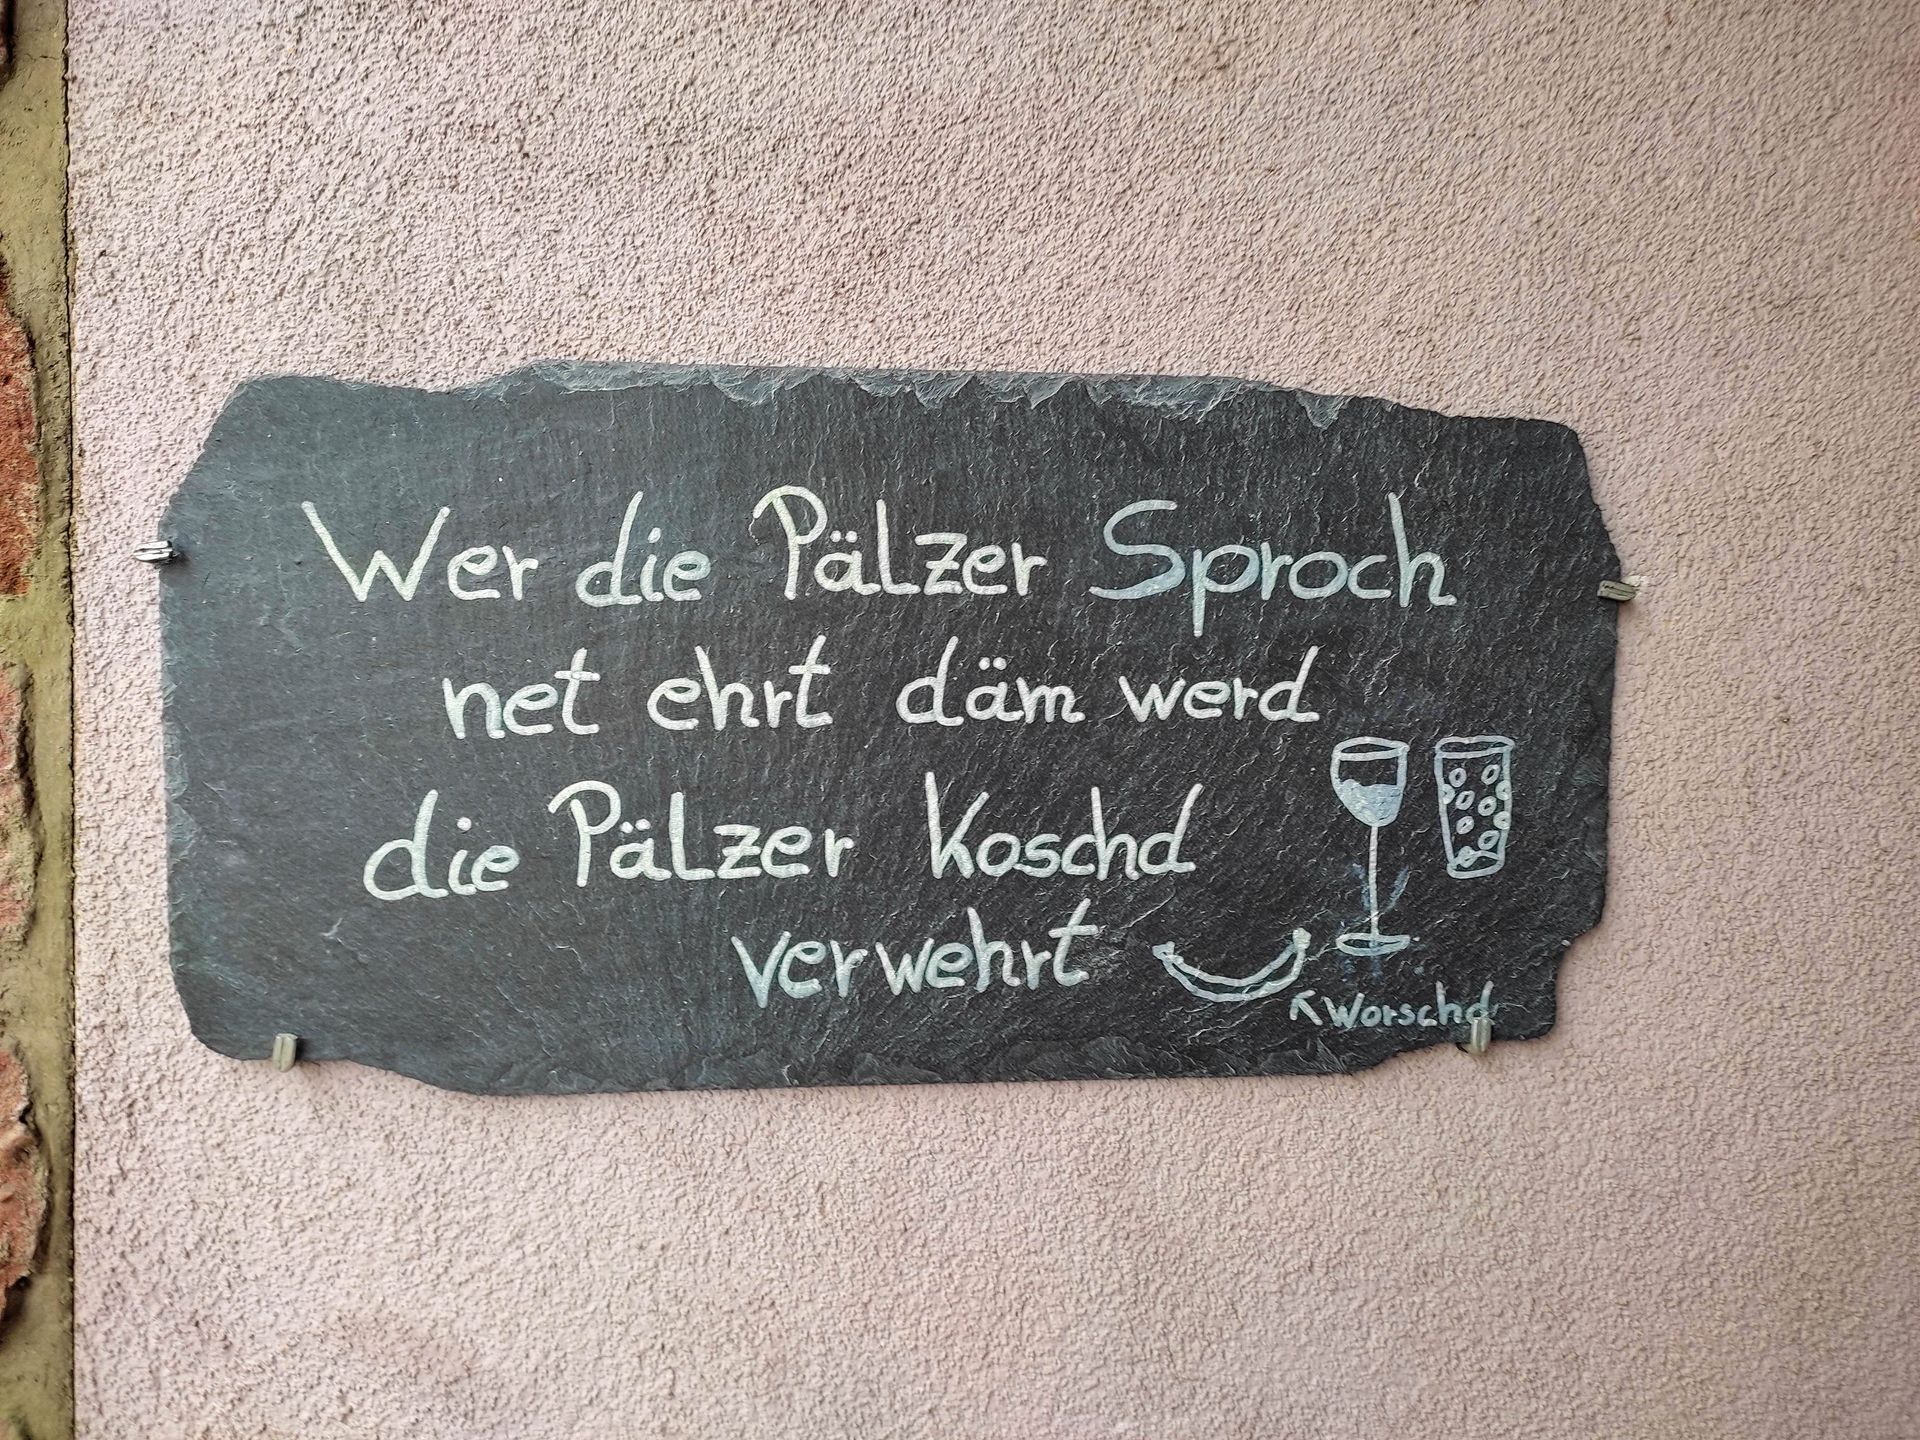 Wer die Pälzer Sproch
net ehrt däm werd
die Pälzer Koschd
verwehrt
↖Worschd